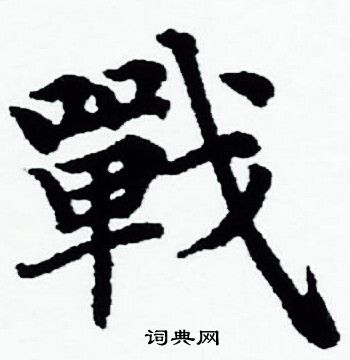 戰
词典网